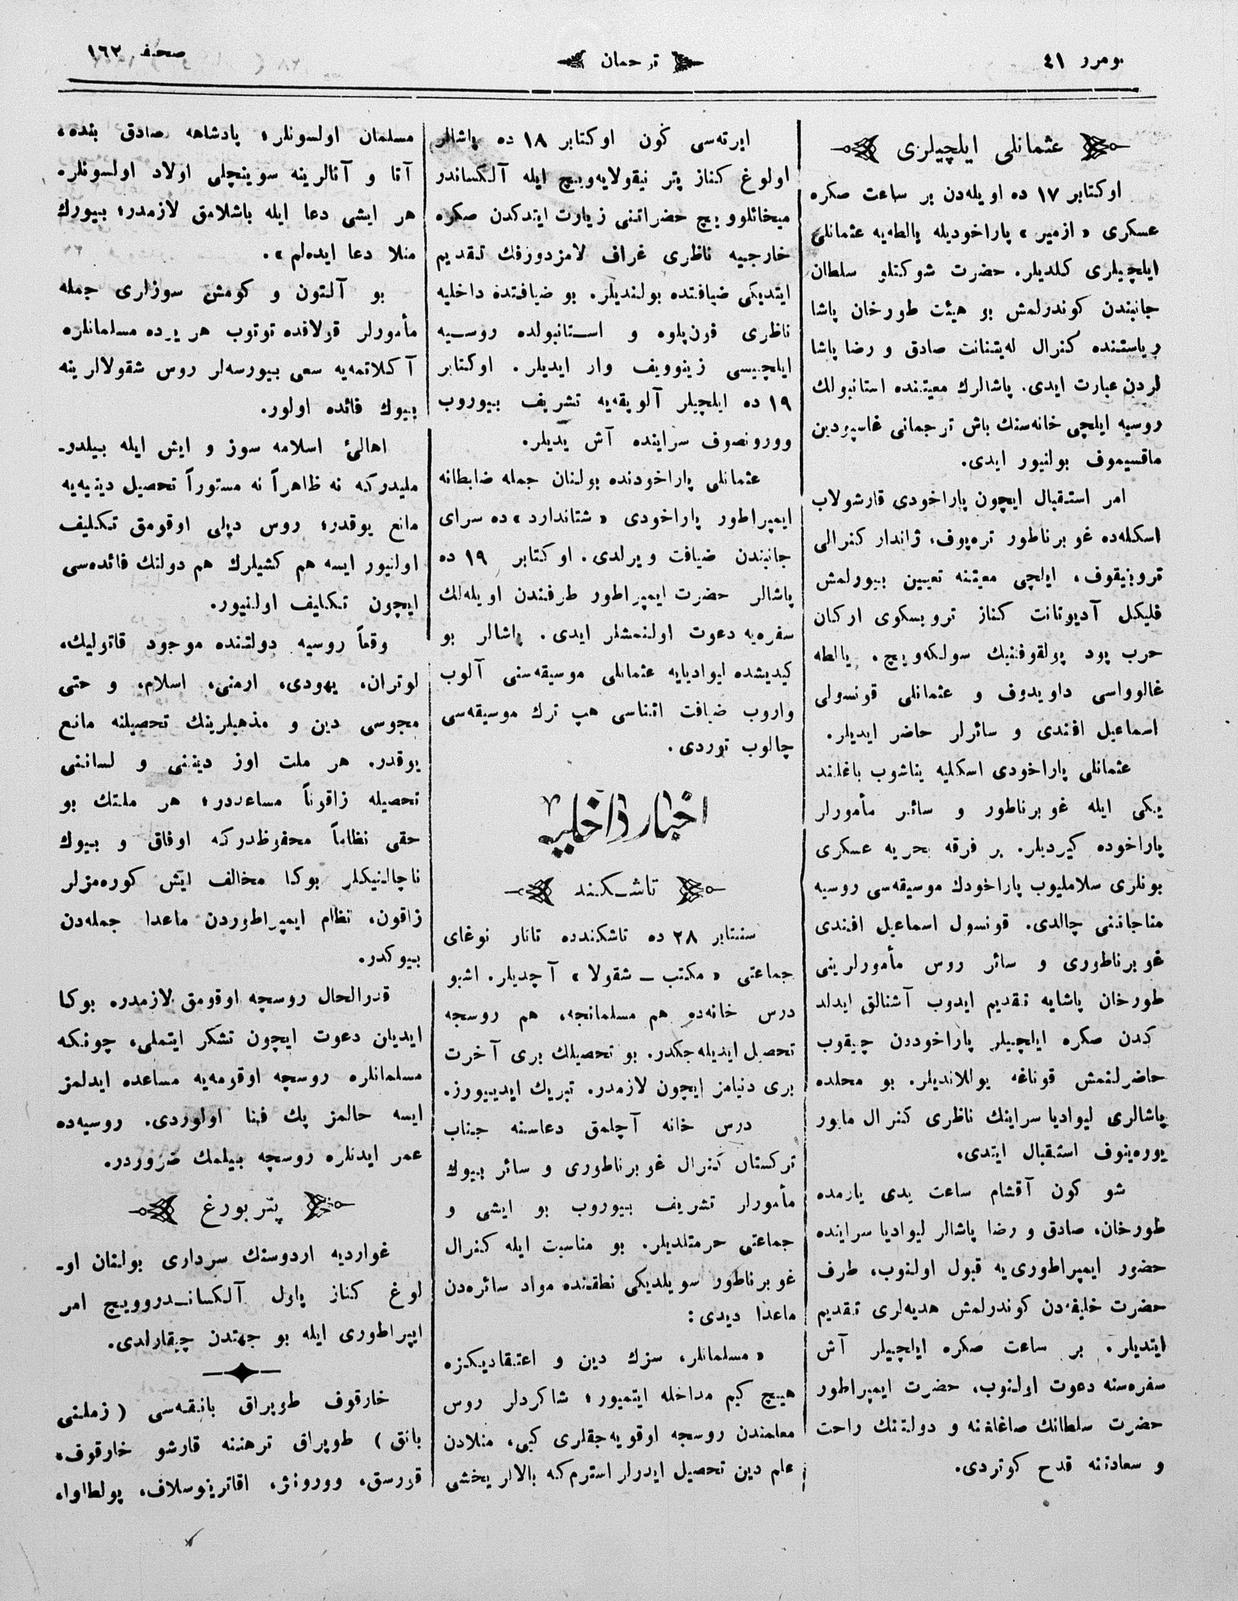 نومرو ٤١
ترجمان
صحیفه ١٦٢
عثمانلی ایلچیلری
اوكتابر ١٧ ده اویله‌دن بر ساعت صكره
عسكری «ازمیر» پاراخودیله یالطه‌یه عثمانلی
ایلچیلری كلدیلر. حضرت شوكتلو سلطان
جانبندن كوندرلمش بو هیئت طورخان پاشا
ریاستنده كنرال له‌یتنانت صادق و رضا پاشا
لردن عبارت ایدی. پاشالرك معیتنده استانبولك
روسیه ایلچی خانه‌سنك باش ترجمانی غاسپودین
ماقسیموف بولنیور ایدی.
امر استقبال ایچون پاراخودی قارشولاب
اسكله‌ده غوبرناطور تره‌پوف، ژاندار كنرالی
تروینیقوف، ایلچی معیتنه تعیین بیورلمش
فلیكل آدیوتانت كناز تروبسكوی اركان
حرب پود پولقوفنیك سولكه‌ویچ. یالطه
غالوواسی داویدوف و عثمانلی قونسولی
اسماعیل افندی و سائرلر حاضر ایدیلر.
عثمانلی پاراخودی اسكلیه یناشوب باغلند
یكی ایله غوبرناطور و سائر مأمورلر
پاراخوده كیردیلر. بر فرقه بحریه عسكری
بونلری سلاملیوب پاراخودك موسیقه‌سی روسیه
مناجاتنی چالدی. قونسول اسماعیل افندی
غوبرناطوری و سائر روس مأمورلرینی
طورخان پاشایه تقدیم ایدوب آشنالق ایدلد
كدن صكره ایلچیلر پاراخوددن چیقوب
حاضرلنمش قوناغه یوللاندیلر. بو محلده
پاشالری لیوادیا سراینك ناظری كنرال مایور
یوره‌ینوف استقبال ایتدی.
شو كون آقشام ساعت یدی یارمده
طورخان، صادق و رضا پاشالر لیوادیا سراینده
حضور ایمپراطوری‌یه قبول اولنوب، طرف
حضرت خلیفه‌دن كوندرلمش هدیه‌لری تقدیم
ایتدیلر. بر ساعت صكره ایلچیلر آش
سفره‌سنه دعوت اولنوب، حضرت ایمپراطور
حضرت سلطانك صاغلغنه و دولتنك راحت
و سعادتنه قدح كوتردی.
ایرته‌سی كون اوكتابر ١٨ ده پاشالر
اولوغ كناز پتر نیقولایه‌ویچ ایله آلكساندر
میخائلوویچ حضراتنی زیارت ایتدكدن صكره
خارجیه ناظری غراف لامزدورفك تقدیم
ایتدیكی ضیافتده بولندیلر. بو ضیافتده داخلیه
ناظری فون‌پلوه و استانبولده روسیه
ایلچیسی زینوویف وار ایدیلر. اوكتابر
١٩ ده ایلچیلر آلوپقه‌یه تشریف بیوروب
وورونصوف سراینده آش یدیلر.
عثمانلی پاراخودنده بولنان جمله ضابطانه
ایمپراطور پاراخودی «شتاندارد» ده سرای
جانبندن ضیافت ویرلدی. اوكتابر ١٩ ده
پاشالر حضرت ایمپراطور طرفندن اویله‌لك
سفره‌یه دعوت اولنمشلر ایدی. پاشالر بو
كیدیشده لیوادیایه عثمانلی موسیقه‌سنی آلوب
واروب ضیافت اثناسی هپ ترك موسیقه‌سی
چالوب توردی.
اخبار داخلیه
تاشكند
سنتابر ٢٨ ده تاشكندده تاتار نوغای
جماعتی «مكتب ـ شقولا» آچدیلر. اشبو
درس خانه‌ده هم مسلمانجه، هم روسجه
تحصیل ایدیله‌جكدر. بو تحصیلك بری آخرت
بری دنیامز ایچون لازمدر. تبریك ایدییورز.
درس خانه آچلمق دعاسنه جناب
تركستان كنرال غوبرناطوری و سائر بیوك
مأمورلر تشریف بیوروب بو ایشی و
جماعتی حرمتلدیلر. بو مناسبت ایله كنرال
غوبرناطور سویلدیكی نطقنده مواد سائره‌دن
ماعدا دیدی:
«مسلمانلر، سزك دین و اعتقادیكزه
هیچ كیم مداخله ایتمیور؛ شاكردلر روس
معلمندن روسجه اوقویه‌جقلری كبی، منلادن
علم دین تحصیل ایدرلر استرم كه بالالر یخشی
مسلمان اولسونلر؛ پادشاهه صادق بنده،
آتا و آنالرینه سوینچلی اولاد اولسونلر.
هر ایشی دعا ایله باشلامق لازمدر؛ بیورك
منلا دعا ایده‌لم».
بو آلتون و كومش سوزلری جمله
مأمورلر قولاقده توتوب هر یرده مسلمانلره
آكلاتمه‌یه سعی بیورسه‌لر روس شقولالرینه
بیوك فائده اولور.
اهالیٔ اسلامه سوز و ایش ایله بیلدر-
ملیدركه نه ظاهراً نه مستوراً تحصیل دینیه‌یه
مانع یوقدر؛ روس دیلی اوقومق تكلیف
اولنیور ایسه هم كشیلرك هم دولتك فائده‌سی
ایچون تكلیف اولنیور.
وقعاً روسیه دولتنده موجود قاتولیك،
لوتران، یهودی، ارمنی، اسلام، و حتی
مجوسی دین و مذهبلرینك تحصیلنه مانع
یوقدر. هر ملت اوز دیننی و لساننی
تحصیله زاقوناً مساعددر؛ هر ملتك بو
حقی نظاماً محفوظدركه اوفاق و بیوك
ناچالنیكلر بوكا مخالف ایش كوره‌مزلر
زاقون، نظام ایمپراطوردن ماعدا جمله‌دن
بیوكدر.
قدرالحال روسچه اوقومق لازمدره بوكا
ایدیان دعوت ایچون تشكر ایتملی، چونكه
مسلمانلره روسچه اوقومه‌یه مساعده ایدلمز
ایسه حالمز پك فنا اولوردی. روسیه‌ده
عمر ایدنلره روسچه بیلمك ضروردر.
پتربورغ
غواردیه اردوسنك سرداری بولنان او-
لوغ كناز پاول آلكساندروویچ امر
ایپراطوری ایله بو جهتدن چیقارلدی.
خارقوف طوپراق بانقه‌سی (زملنی
بانق) طوپراق ترهننه قارشو خارقوف،
قورسق، وورونژ، اقاترینوسلاف، پولطاوا،